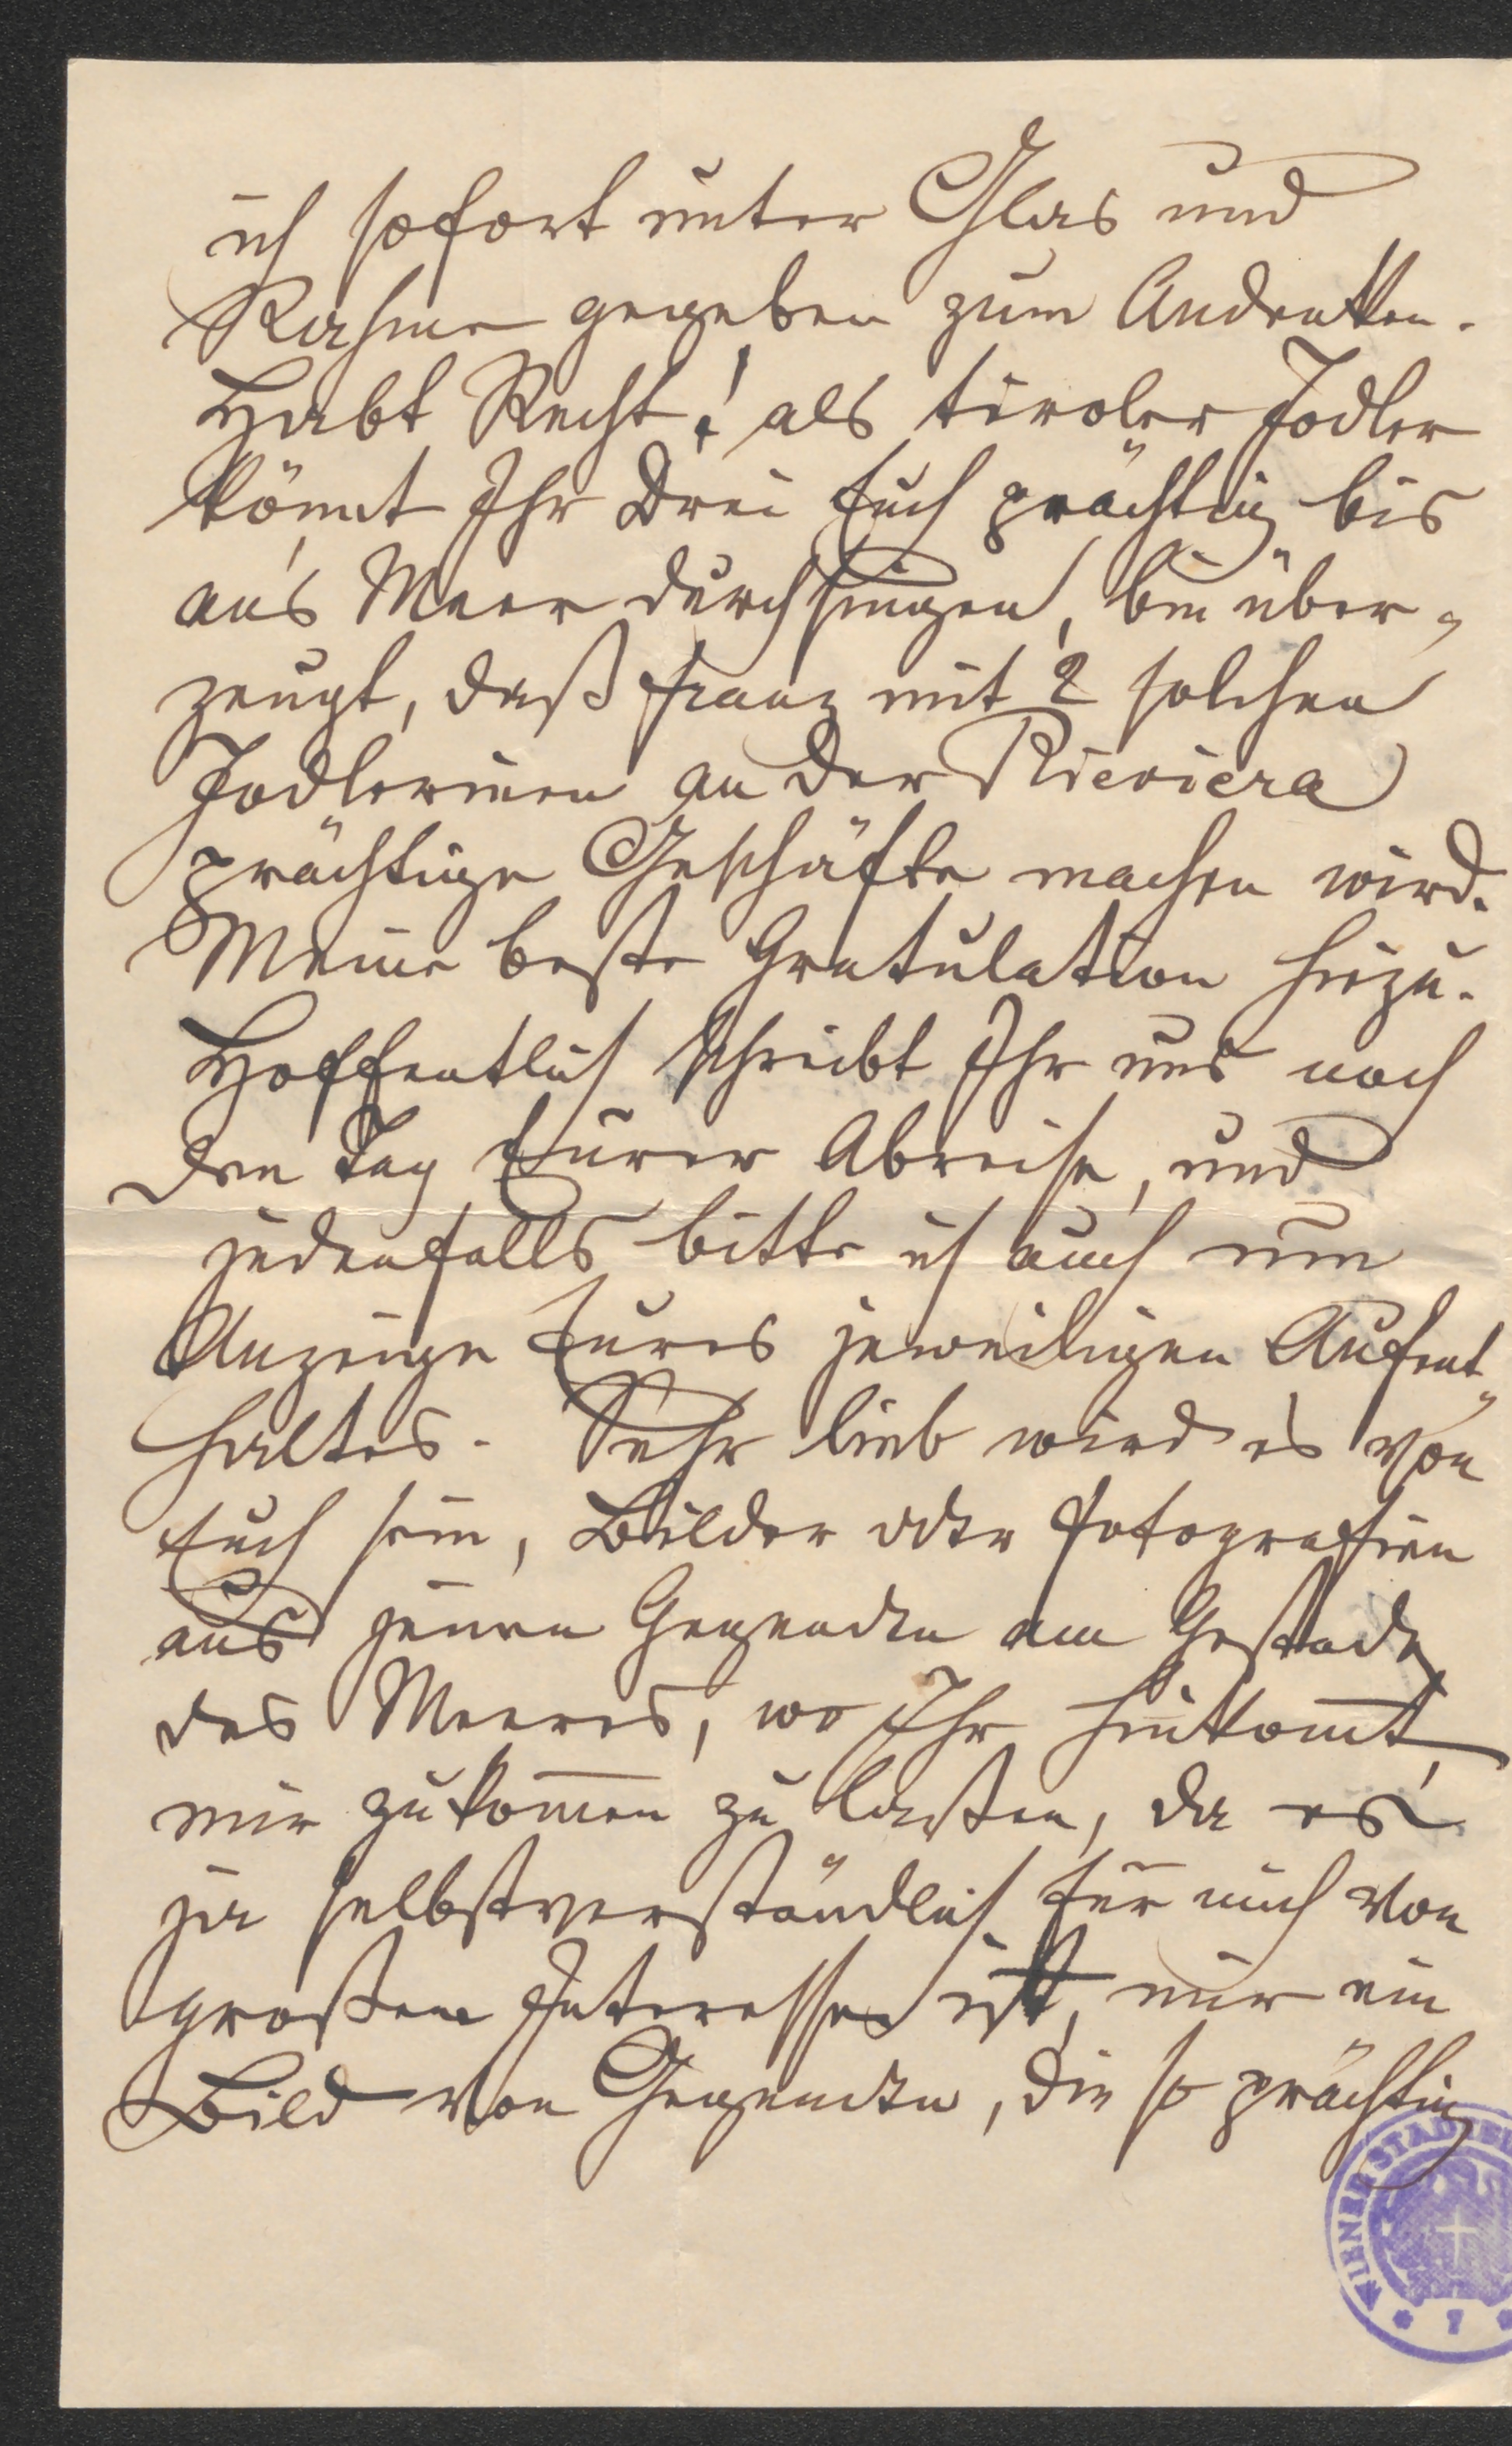 ich sofort unter Glas und
Rahme gegeben zum Andenken.
Habt Recht! als tiroler Jodler
könnt Ihr Drei Euch prächtig bis
an's Meer durchsingen, bin über„
zeugt, daß Franz mit 2 solchen
Jodlerinen an der Rieviera
prächtige Geschäfte machen wird.
Meine beste Gratulation hiezu.
Hoffentlich schreibt Ihr uns noch
den Tag Eurer Abreise, und
jedenfalls bitte ich auch um
Anzeige Eures jeweiligen Aufent„
haltes. Sehr lieb wird es von
Euch sein, Bilder oder Fotografien
aus jenen Gegenden am Gestade
des Meeres, wo Ihr hinkom̅t,
mir zukom̅en zu laßen, da es
ja selbstverständlich für mich von
großem Interesse ist, mir ein
Bild von Gegenden, die so prächtig
WIENER STADTBI
7